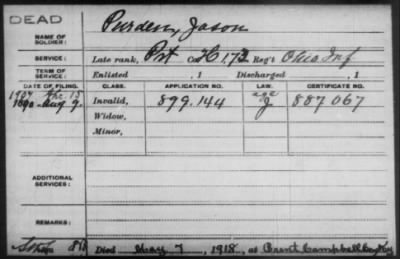 DEAD
NAME OF SOLDIER: Purden, Jason
SERVICE: Late rank, Pvt Co H 173 Reg't Ohio Inf
TERM OF SERVICE: Enlisted , 1 Discharged , 1
DATE OF FILING. CLASS. APPLICATION NO. LAW. CERTIFICATE NO.
1907 Apr. 15 age
1890 Aug 9. Invalid, 899.144 J 887067
Widow,
Minor,
ADDITIONAL SERVICES:
REMARKS:
Died May 7, 1918, at Campbell Co Ky